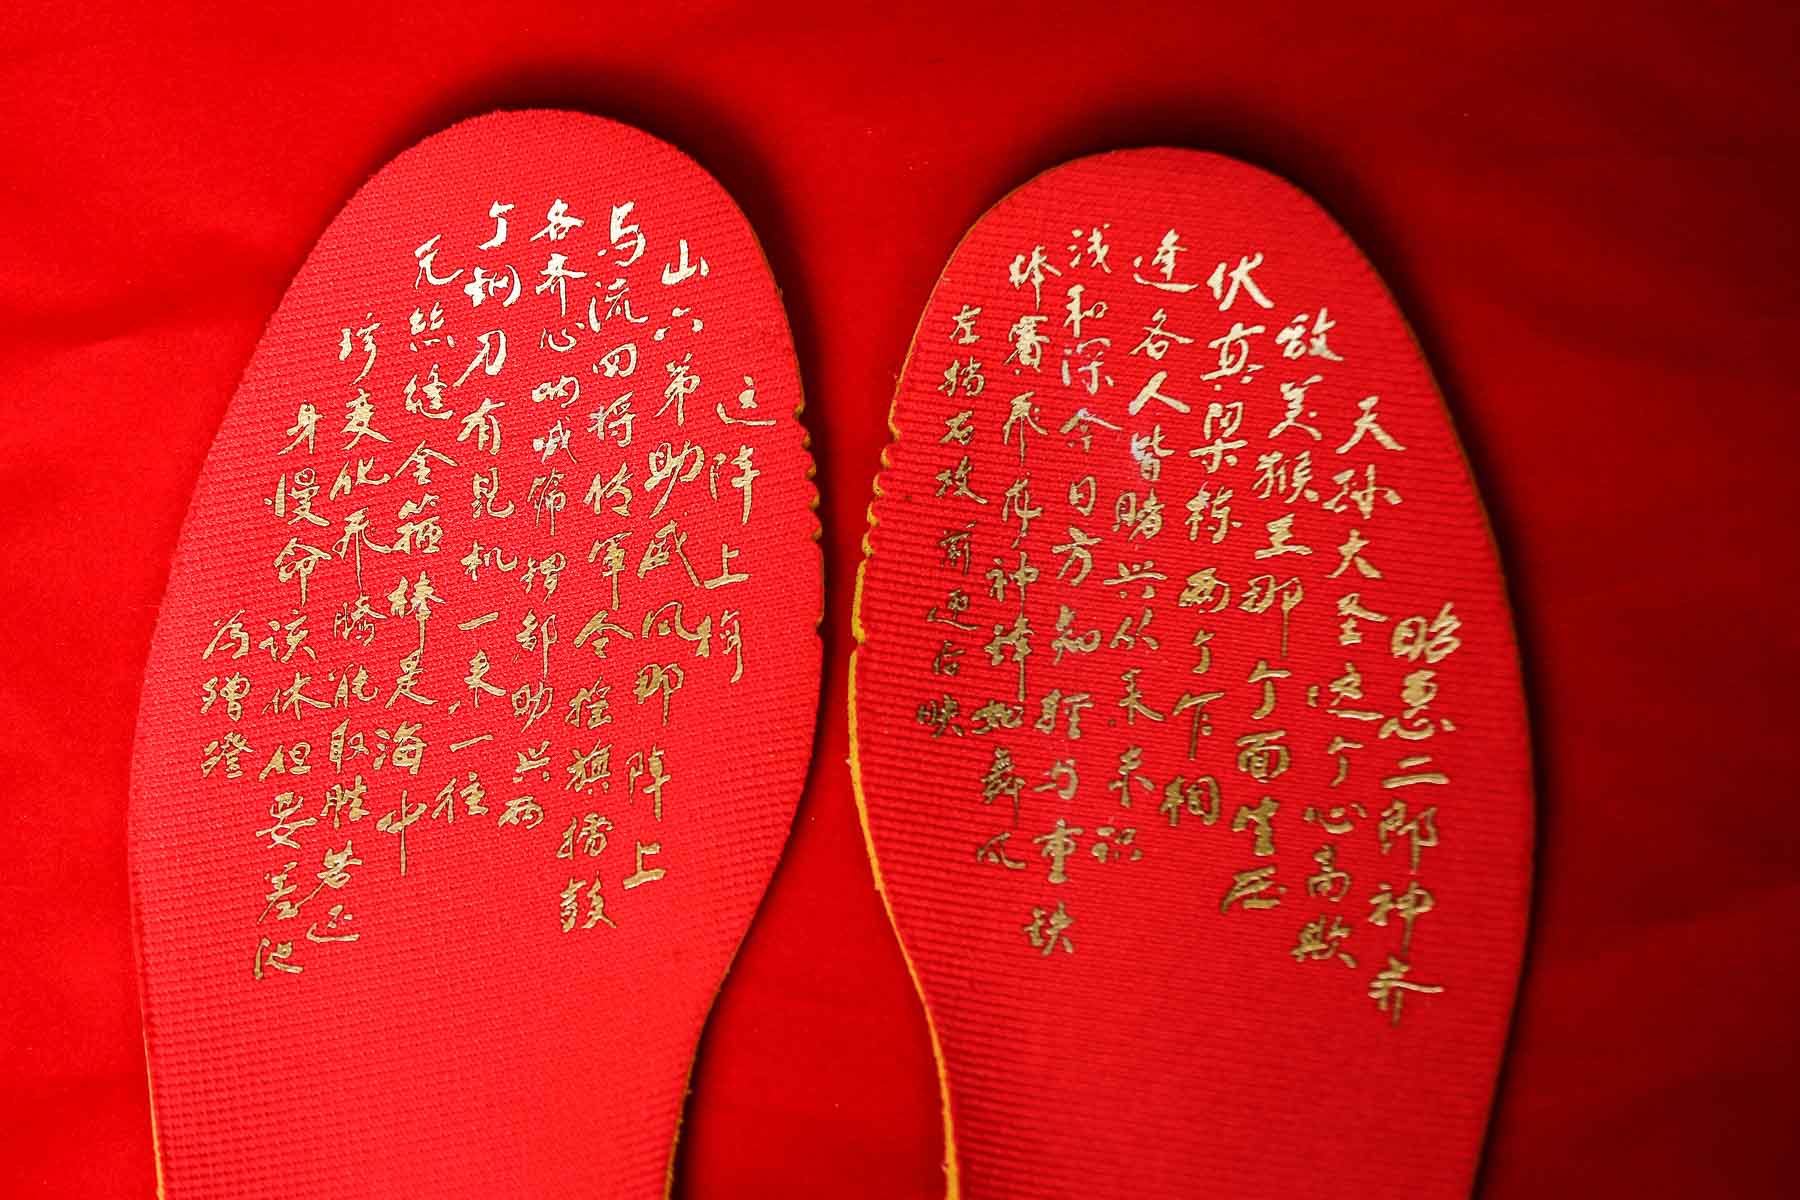 昭惠二郎神齐
天孙大圣这个心高欺
敌美猴王那个面生压
伏真梁栋两个乍相
逢各人皆赌兴从来未识
浅和深今日方知轻与重铁
棒赛飞龙神锋如舞凤
左挡右攻前迎后映
这阵上梅
山六弟助威风那阵上
马流四将传军令摇旗擂鼓
各齐心呐喊筛锣都助兴两
个钢刀有见机一来一往
无丝缝金箍棒是海中
珍变化飞腾能取胜若还
身慢命该休但要差池
为蹭蹬